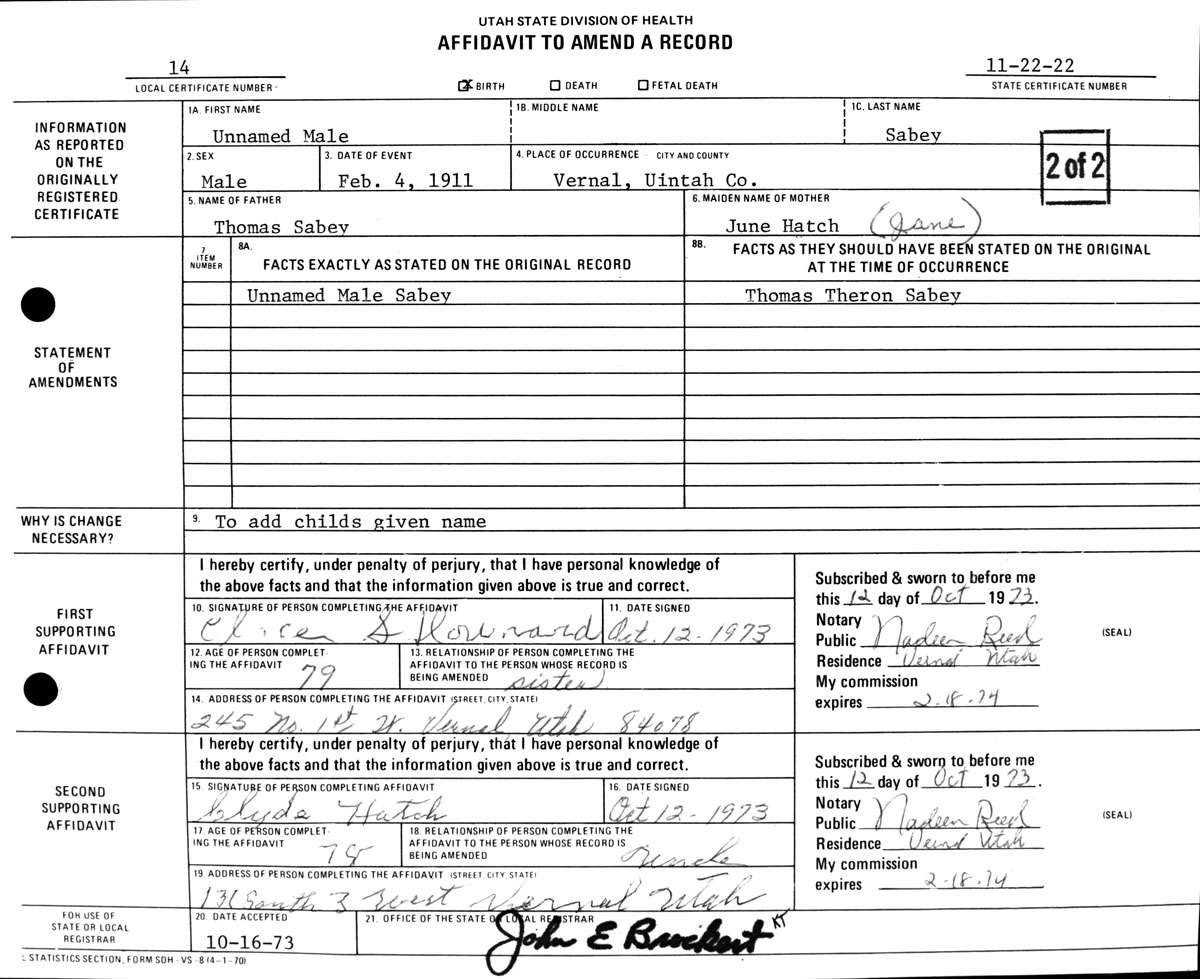 UTAH STATE DIVISION OF HEALTH
AFFIDAVIT TO AMEND A RECORD
14
LOCAL CERTIFICATE NUMBER
X BIRTH DEATH FETAL DEATH
11-22-22
STATE CERTIFICATE NUMBER
INFORMATION
AS REPORTED
ON THE
ORIGINALLY
REGISTERED
CERTIFICATE
1A. FIRST NAME 1B. MIDDLE NAME 1C. LAST NAME
Unnamed Male Sabey
2. SEX 3. DATE OF EVENT 4. PLACE OF OCCURRENCE CITY AND COUNTY
Male Feb. 4, 1911 Vernal, Uintah Co.
2 of 2
5. NAME OF FATHER 6. MAIDEN NAME OF MOTHER
Thomas Sabey June Hatch (Jane)
STATEMENT
OF
AMENDMENTS
7
ITEM
NUMBER
8A.
FACTS EXACTLY AS STATED ON THE ORIGINAL RECORD
8B. FACTS AS THEY SHOULD HAVE BEEN STATED ON THE ORIGINAL
AT THE TIME OF OCCURRENCE
Unnamed Male Sabey Thomas Theron Sabey
WHY IS CHANGE
NECESSARY?
9. To add childs given name
FIRST
SUPPORTING
AFFIDAVIT
I hereby certify, under penalty of perjury, that I have personal knowledge of
the above facts and that the information given above is true and correct.
10. SIGNATURE OF PERSON COMPLETING THE AFFIDAVIT 11. DATE SIGNED
S Oct. 12-1973
12. AGE OF PERSON COMPLET-
ING THE AFFIDAVIT 79
13. RELATIONSHIP OF PERSON COMPLETING THE
AFFIDAVIT TO THE PERSON WHOSE RECORD IS
BEING AMENDED sister
14. ADDRESS OF PERSON COMPLETING THE AFFIDAVIT (STREET, CITY, STATE)
245 No. 1st W. Vernal, Utah 84078
Subscribed & sworn to before me
this 12 day of Oct 1973.
Notary
Public Nadeen Reed
Residence Vernal Utah
My commission
expires 2-18-74
(SEAL)
SECOND
SUPPORTING
AFFIDAVIT
I hereby certify, under penalty of perjury, that I have personal knowledge of
the above facts and that the information given above is true and correct.
15. SIGNATURE OF PERSON COMPLETING AFFIDAVIT 16. DATE SIGNED
Clyde Hatch Oct 12-1973
17. AGE OF PERSON COMPLET-
ING THE AFFIDAVIT 78
18. RELATIONSHIP OF PERSON COMPLETING THE
AFFIDAVIT TO THE PERSON WHOSE RECORD IS
BEING AMENDED Uncle
19. ADDRESS OF PERSON COMPLETING THE AFFIDAVIT (STREET, CITY, STATE)
131 South 3 West Vernal Utah
Subscribed & sworn to before me
this 12 day of Oct 1973.
Notary
Public Nadeen Reed
Residence Vernal Utah
My commission
expires 2-18-74
(SEAL)
FOR USE OF
STATE OR LOCAL
REGISTRAR
20. DATE ACCEPTED 21. OFFICE OF THE STATE OR LOCAL REGISTRAR
10-16-73 John E Brockert KT
L STATISTICS SECTION, FORM SDH-VS-8 (4-1-70)